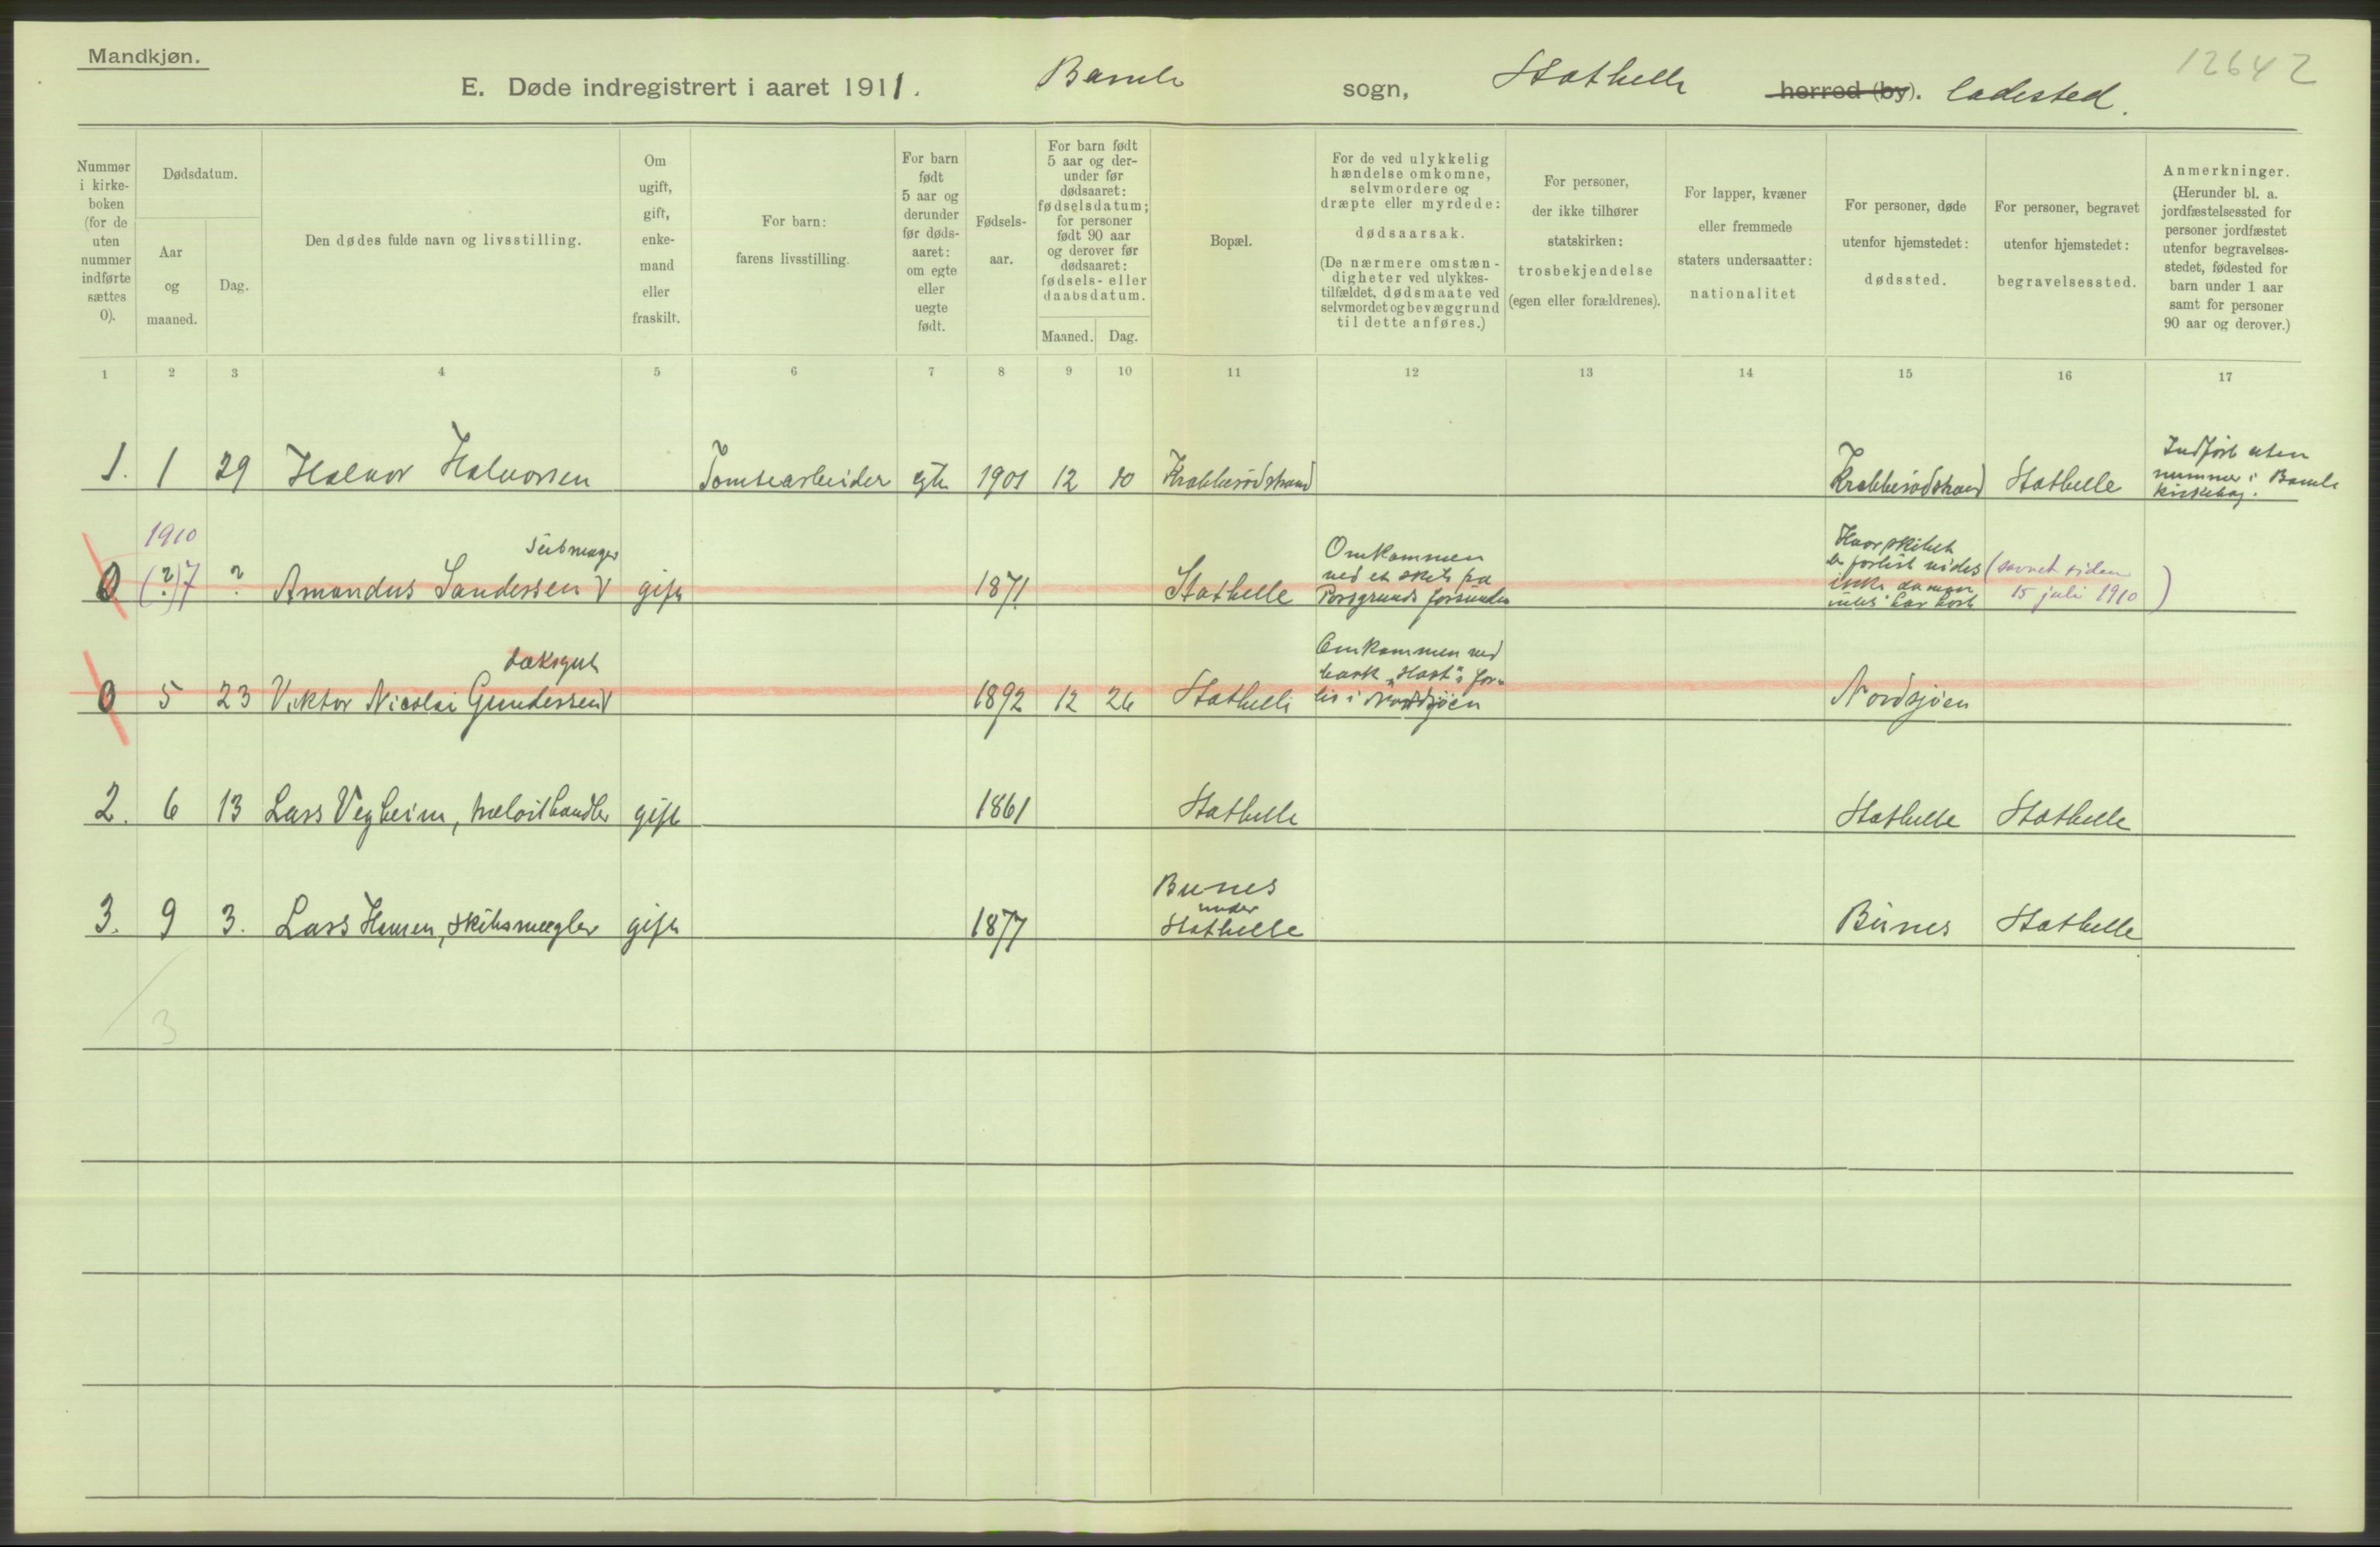 Mandkjøn.
12642
E. Døde indregistrert i aaret 1911. Bamle sogn, Stathelle herred (by). ladested.
Nummer i kirkeboken (for de uten nummer indførte sættes 0).
Dødsdatum.
Aar og maaned.
Dag.
Den dødes fulde navn og livsstilling.
Om ugift, gift, enkemand eller fraskilt.
For barn: farens livsstilling.
For barn født 5 aar og derunder før dødsaaret: om egte eller uegte født.
Fødselsaar.
For barn født 5 aar og derunder før dødsaaret: fødselsdatum; for personer født 90 aar og derover før dødsaaret: fødsels- eller daabsdatum.
Maaned. Dag.
Bopæl.
For de ved ulykkelig hændelse omkomne, selvmordere og dræpte eller myrdede: dødsaarsak.
(De nærmere omstændigheter ved ulykkestilfældet, dødsmaate ved selvmordet og bevæggrund til dette anføres.)
For personer, der ikke tilhører statskirken: trosbekjendelse (egen eller forældrenes).
For lapper, kvæner eller fremmede staters undersaatter: nationalitet
For personer, døde utenfor hjemstedet: dødssted.
For personer, begravet utenfor hjemstedet: begravelsessted.
Anmerkninger.
(Herunder bl. a. jordfæstelsessted for personer jordfæstet utenfor begravelsesstedet, fødested for barn under 1 aar samt for personer 90 aar og derover.)
1 2 3 4 5 6 7 8 9 10 11 12 13 14 15 16 17
1. 1 29 Halvor Halvorsen Tomtearbeider egte 1901 12 10 Krabberødstrand Krabberødstrand Stathelle Indført uten
nummer i Bamle
kirkebog.
1910
0 (?) 7 ? Amandus Sandersen gift 1871 Stathelle Omkommen
ved et skib fra
Porsgrund forsunden
Hvor skibet
er forlist vides
ikke da man
intet har hørt
(savnet siden
15 juli 1910)
0 5 23 Viktor Nicolai Gundersen 1892 12 26 Stathelle Omkommen ved
bark "Hast"s for-
lis i Nordsjøen Nordsjøen
2. 6 13 Lars Vegheim, handler gift 1861 Stathelle Stathelle Stathelle
3. 9 3. Lars Hansen, skibsmægler gift 1877 Bunes
under
Stathelle Bunes Stathelle
3